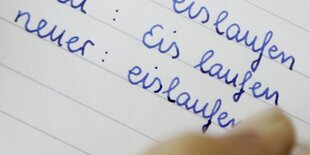 : eislaufen
Eis laufen
neuer: eislaufen